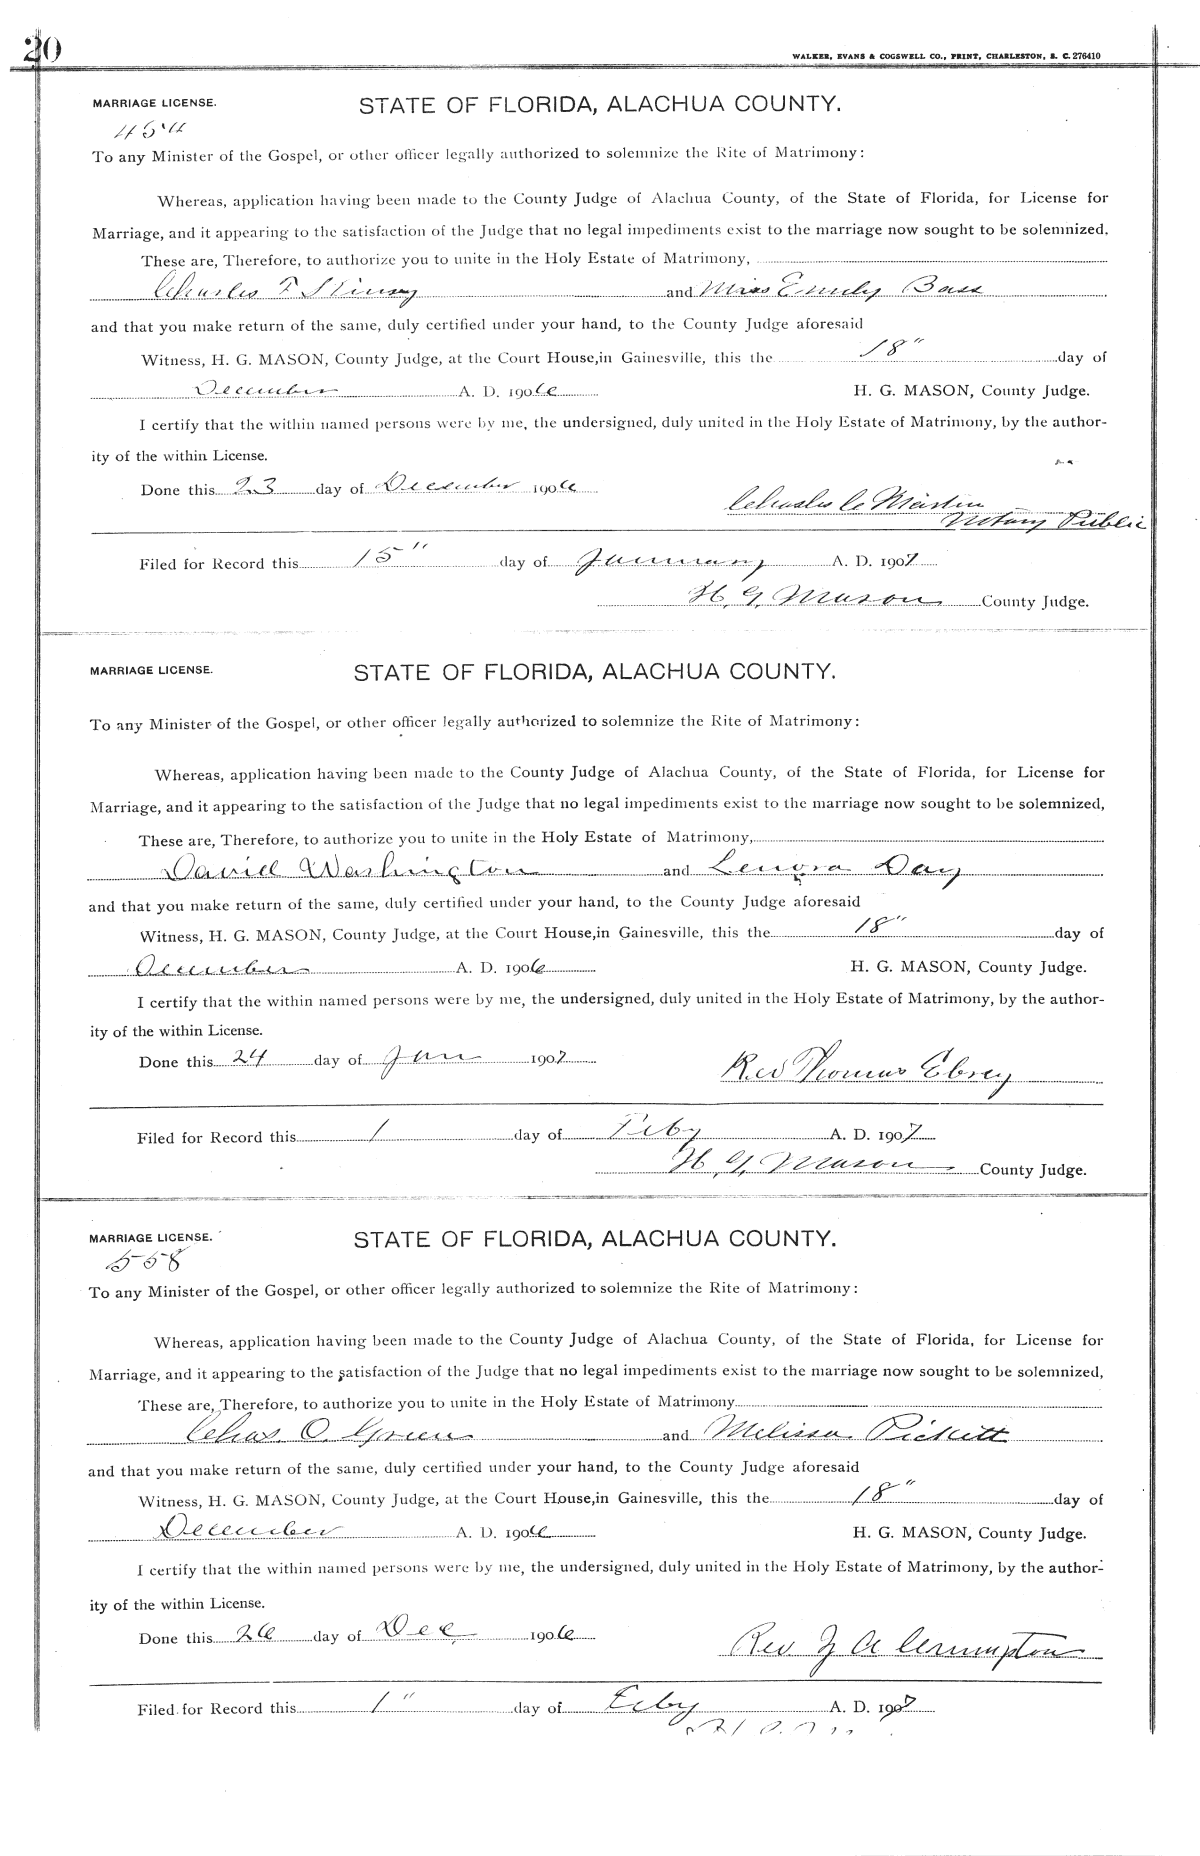 20
WALKER, EVANS & COGSWELL CO., PRINT, CHARLESTON, S. C. 276410
MARRIAGE LICENSE. STATE OF FLORIDA, ALACHUA COUNTY.
454
To any Minister of the Gospel, or other officer legally authorized to solemnize the Rite of Matrimony:
Whereas, application having been made to the County Judge of Alachua County, of the State of Florida, for License for
Marriage, and it appearing to the satisfaction of the Judge that no legal impediments exist to the marriage now sought to be solemnized,
These are, Therefore, to authorize you to unite in the Holy Estate of Matrimony,
Charles F Kinsey and Miss Emily Bass
and that you make return of the same, duly certified under your hand, to the County Judge aforesaid
Witness, H. G. MASON, County Judge, at the Court House, in Gainesville, this the 18" day of
December A. D. 1906 H. G. MASON, County Judge.
I certify that the within named persons were by me, the undersigned, duly united in the Holy Estate of Matrimony, by the author-
ity of the within License.
Done this 23 day of December 1906
Charles C Martin
Notary Public
Filed for Record this 15" day of January A. D. 1907
H. G. Mason County Judge.
MARRIAGE LICENSE. STATE OF FLORIDA, ALACHUA COUNTY.
To any Minister of the Gospel, or other officer legally authorized to solemnize the Rite of Matrimony:
Whereas, application having been made to the County Judge of Alachua County, of the State of Florida, for License for
Marriage, and it appearing to the satisfaction of the Judge that no legal impediments exist to the marriage now sought to be solemnized,
These are, Therefore, to authorize you to unite in the Holy Estate of Matrimony,
David Washington and Lenora Day
and that you make return of the same, duly certified under your hand, to the County Judge aforesaid
Witness, H. G. MASON, County Judge, at the Court House, in Gainesville, this the 18" day of
December A. D. 1906 H. G. MASON, County Judge.
I certify that the within named persons were by me, the undersigned, duly united in the Holy Estate of Matrimony, by the author-
ity of the within License.
Done this 24 day of Jan 1907
Rev Thomas Ebrey
Filed for Record this 1 day of Feby A. D. 1907
H. G. Mason County Judge.
MARRIAGE LICENSE. STATE OF FLORIDA, ALACHUA COUNTY.
558
To any Minister of the Gospel, or other officer legally authorized to solemnize the Rite of Matrimony:
Whereas, application having been made to the County Judge of Alachua County, of the State of Florida, for License for
Marriage, and it appearing to the satisfaction of the Judge that no legal impediments exist to the marriage now sought to be solemnized,
These are, Therefore, to authorize you to unite in the Holy Estate of Matrimony
Chas. O. Green and Melissa Pickett
and that you make return of the same, duly certified under your hand, to the County Judge aforesaid
Witness, H. G. MASON, County Judge, at the Court House, in Gainesville, this the 18" day of
December A. D. 1906 H. G. MASON, County Judge.
I certify that the within named persons were by me, the undersigned, duly united in the Holy Estate of Matrimony, by the author-
ity of the within License.
Done this 26 day of Dec 1906
Rev. A Crumpton
Filed for Record this 1" day of Feby A. D. 1907